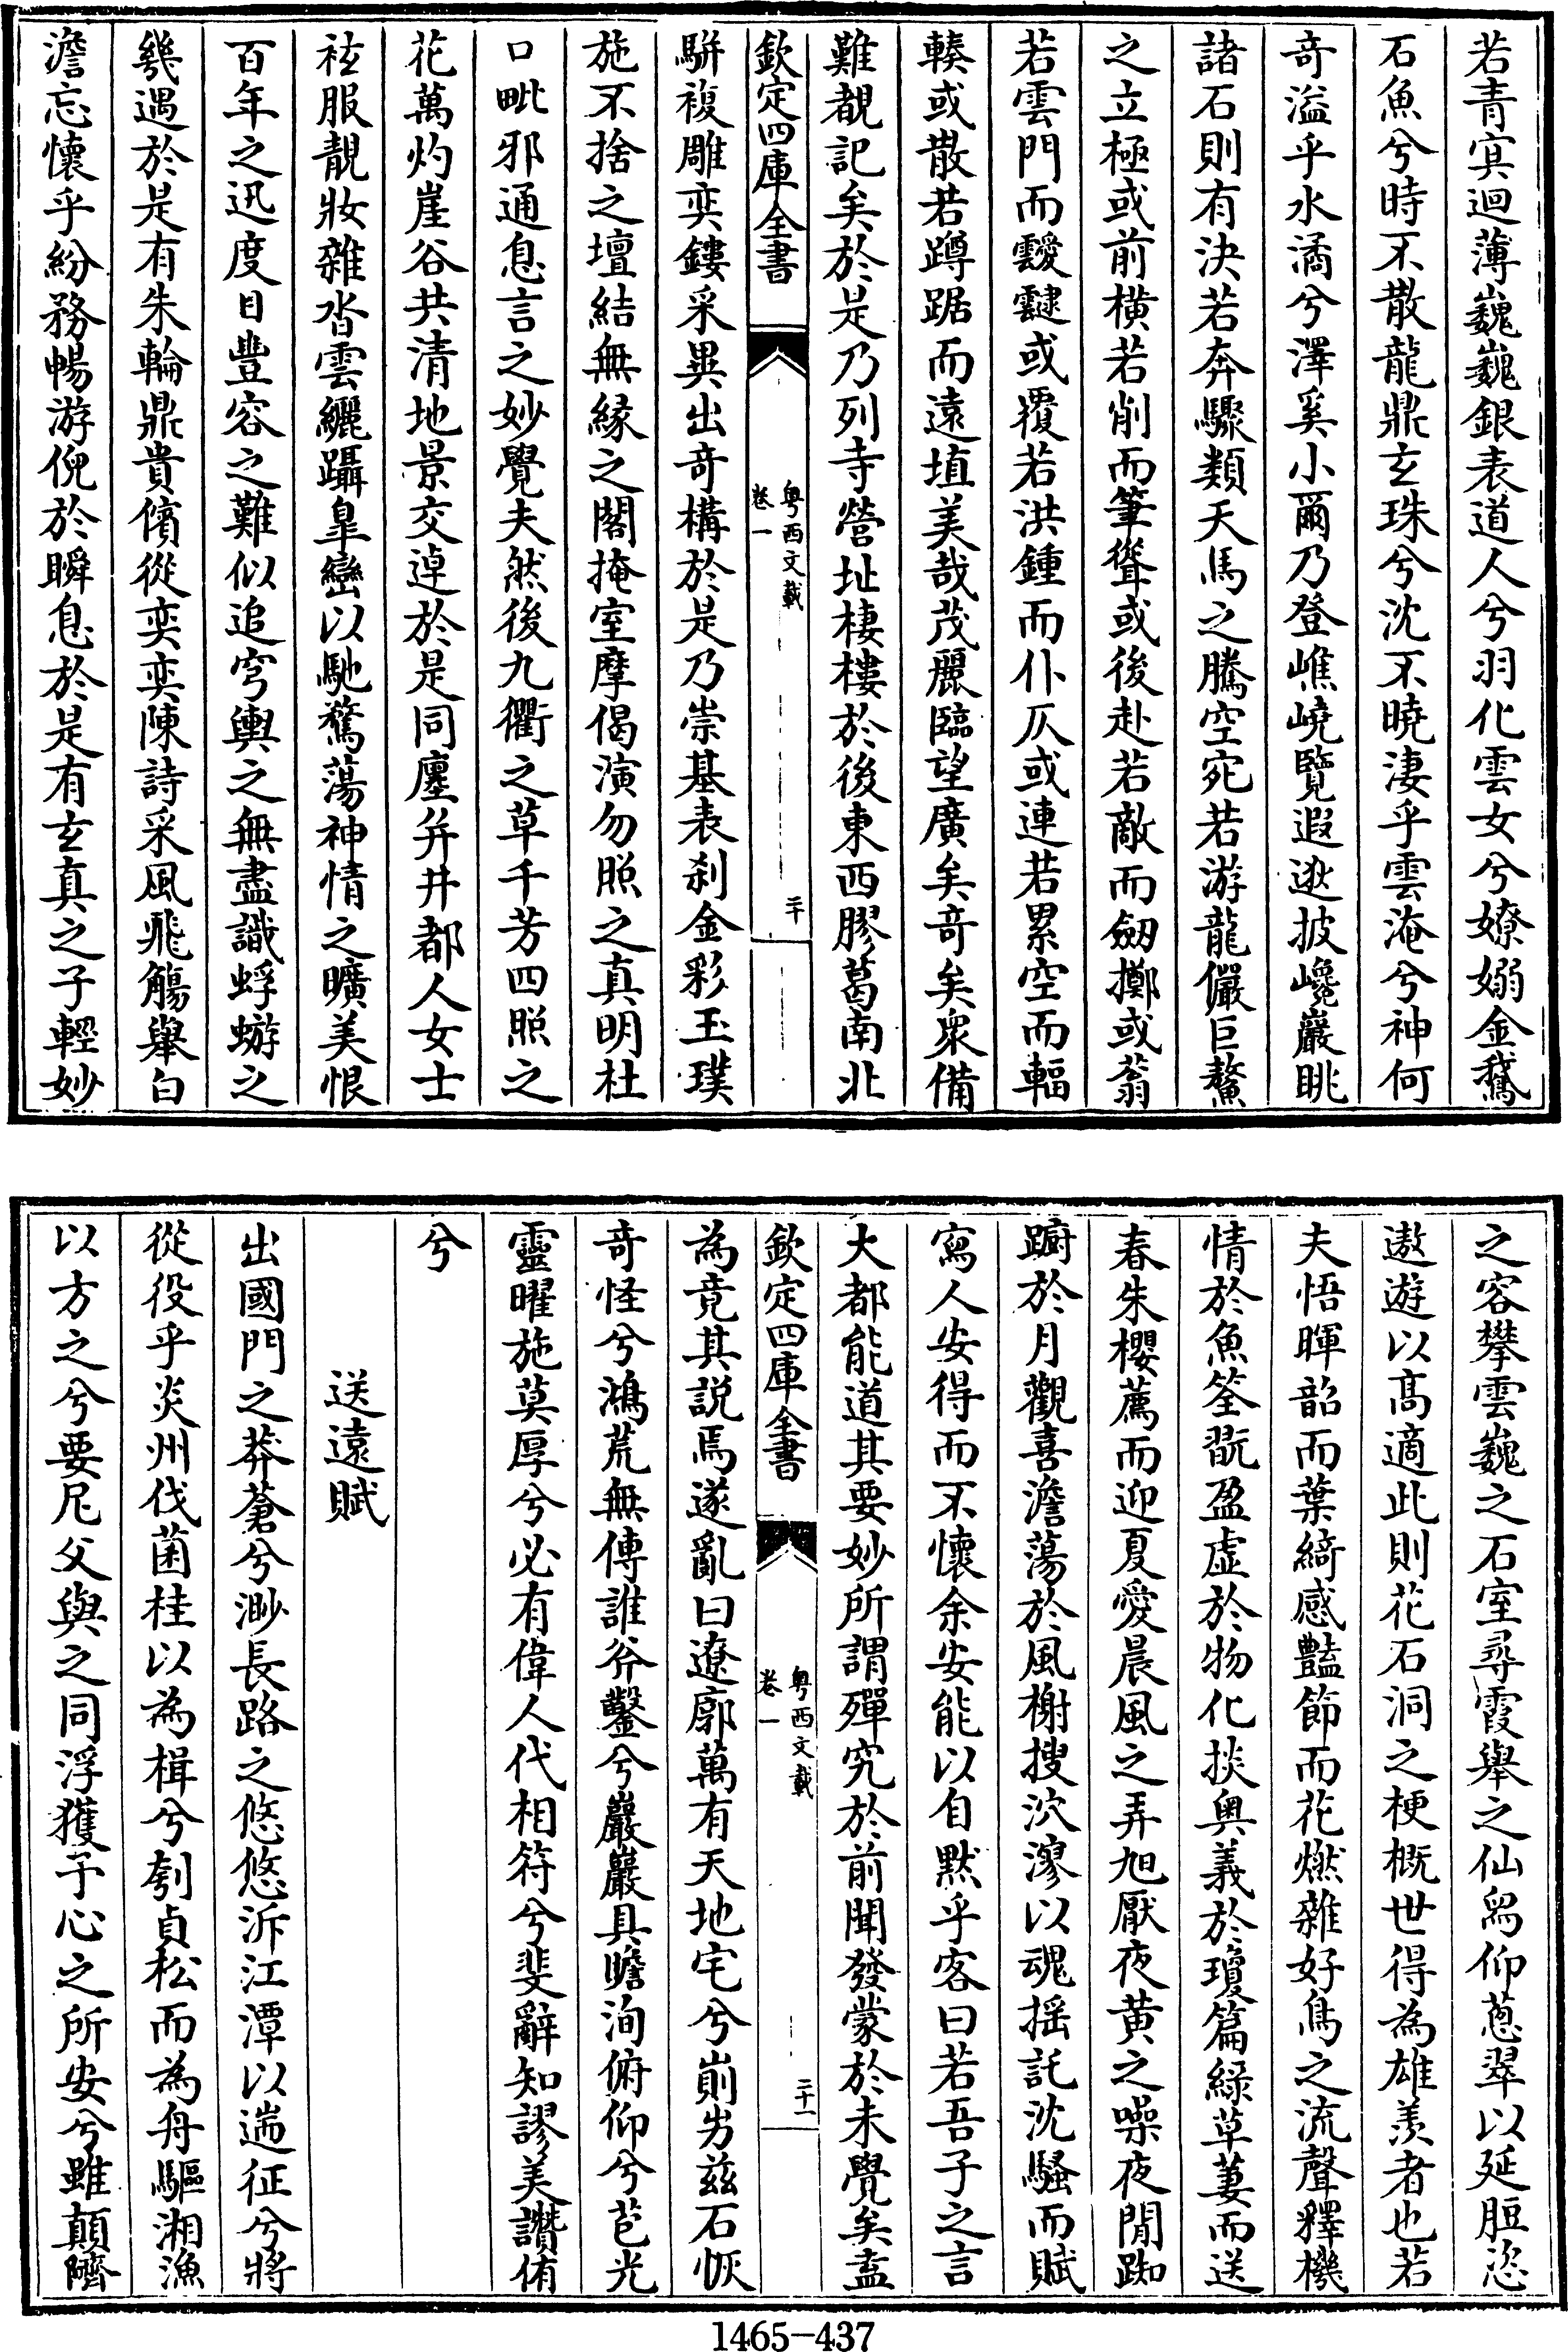 若青㝠迴薄巍巍銀表道人兮羽化雲女兮嫽嫋金鵞
石魚兮時不散龍鼎玄珠兮沈不曉淒乎雲淹兮神何
奇溢乎水潏兮澤奚小爾乃登嶕嶢覽遐逖披巉巖眺
諸石則有決若奔驟類天馬之騰空宛若游龍儼巨鼇
之立極或前橫若削而筆聳或後赴若敵而劒擲或蓊
若雲門而靉靆或覆若洪鍾而仆仄或連若累空而輻
輳或散若蹲踞而遠埴美哉茂麗臨望廣矣奇矣衆備
難覩記矣於是乃列寺營址棲樓於後東西膠葛南北
欽定四庫全書
粤西文載
卷一
二十
駢複雕奕鏤采異出奇構於是乃崇基表刹金彩玉璞
施不捨之壇結無緣之閣掩室摩偈演勿照之真明杜
口毗邪通息言之妙覺夫然後九衢之草千芳四照之
花萬灼崖谷共清地景交逴於是同廛并井都人女士
袨服靚妝雜沓雲纚躡皐巒以馳騖蕩神情之曠美恨
百年之迅度目豐容之難似追穹輿之無盡識蜉蝣之
幾遇於是有朱輪鼎貴儐從奕奕陳詩采風飛觴舉白
澹忘懷乎紛務暢游倪於瞬息於是有玄真之子輕妙
之容攀雲巍之石室尋霞舉之仙舄仰蔥翠以延脰恣
遨遊以髙適此則花石洞之梗概世得為雄羡者也若
夫悟暉韶而葉綺感豔節而花燃雜好鳥之流聲釋機
情於魚筌翫盈虛於物化掞奥義於瓊篇綠草萋而送
春朱櫻薦而迎夏愛晨風之弄旭厭夜黄之噪夜閒踟
躕於月觀喜澹蕩於風榭搜泬漻以魂搖託沈騷而賦
寫人安得而不懷余安能以自默乎客曰若吾子之言
大都能道其要妙所謂殫究於前聞發蒙於未覺矣盍
欽定四庫全書
粤西文載
卷一
二十一
為竟其説焉遂亂曰遼廓萬有天地宅兮崱屴兹石恢
奇怪兮鴻荒無傳誰斧鑿兮巖巖具瞻洵俯仰兮苞光
靈曜施莫厚兮必有偉人代相符兮斐辭知謬美讚侑
兮
送遠賦
出國門之莽蒼兮渺長路之悠悠泝江潭以遄征兮將
從役乎炎州伐菌桂以為楫兮刳貞松而為舟驅湘漁
以方之兮要尼父與之同浮獲予心之所安兮雖顛隮
1465-437